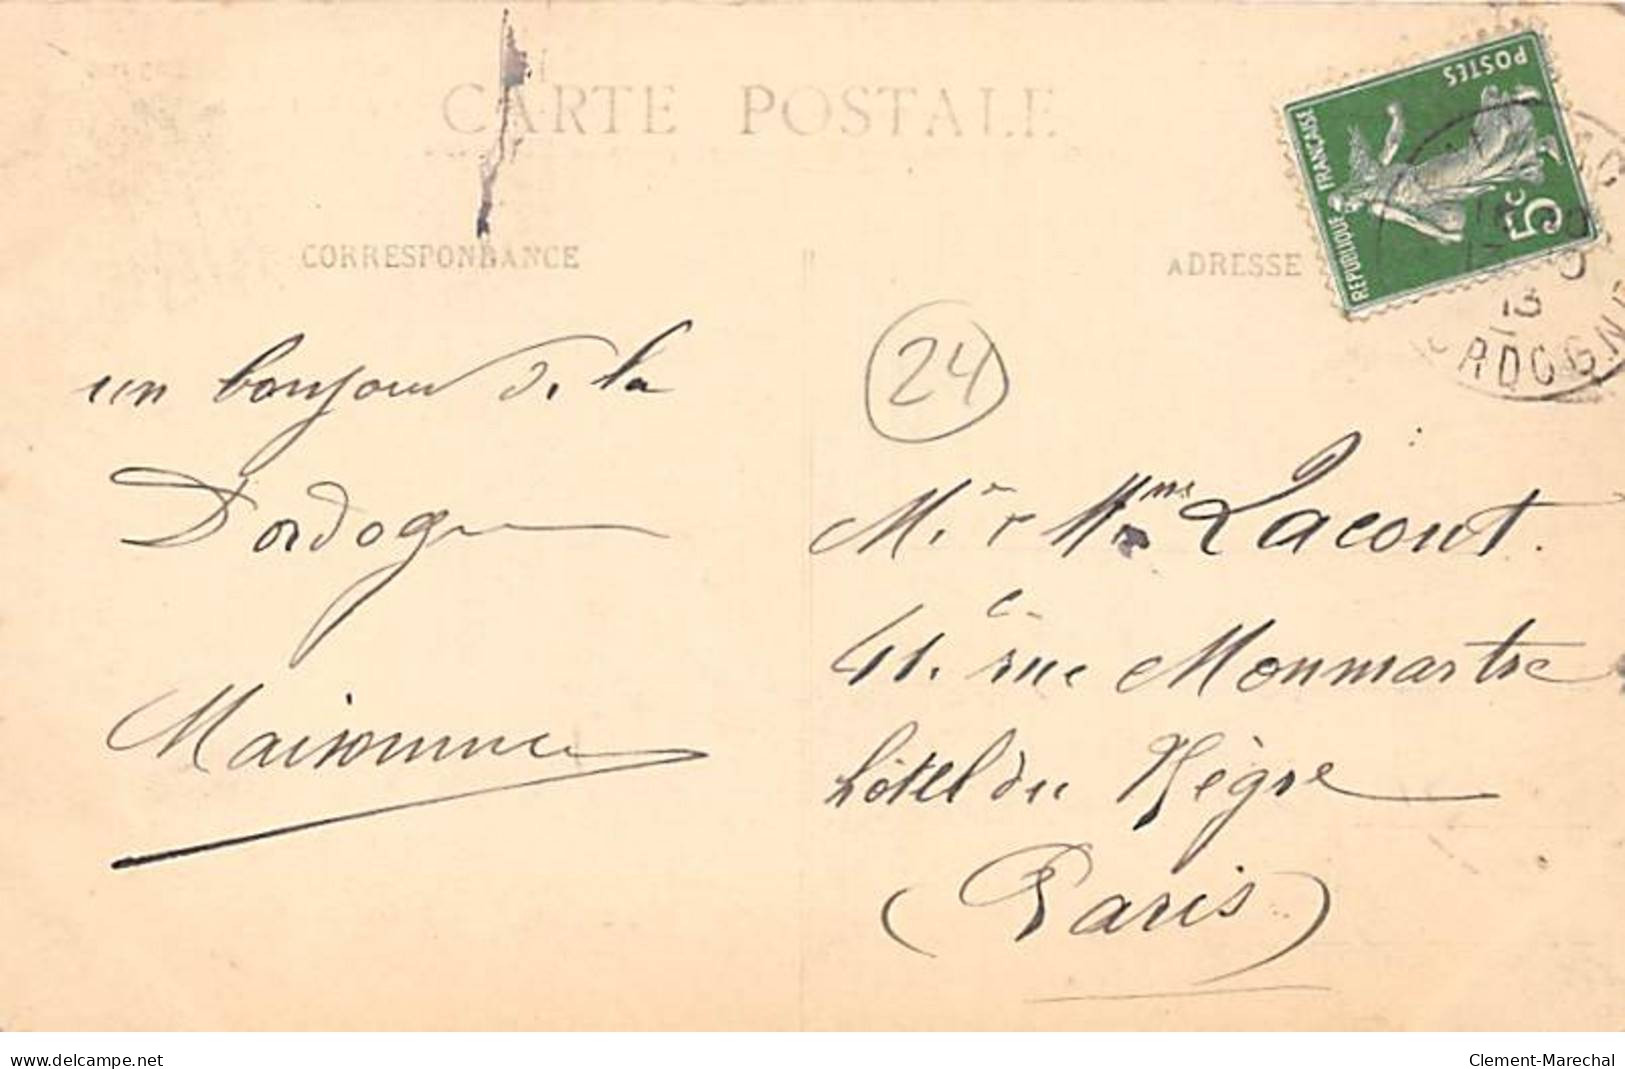 CARTE POSTALE
CORRESPONDANCE
ADRESSE
POSTES
RÉPUBLIQUE FRANÇAISE
5c
13
ORDOGNE
24
un bonjour de la
Dordogne
Maisonnnce
M. et Mme Lacout.
41. rue Monmartre
hôtel du Nègre
(Paris)
www.delcampe.net
Clement-Marechal